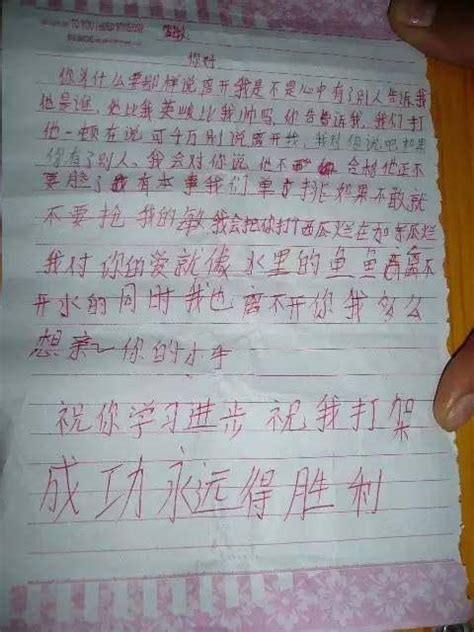 TO YOU
你好
你为什么要那样说离开我是不是心中有了别人告诉我
他是谁,他比我英峻比我帅吗,你告诉我,我们打
他一顿在说可千万别说离开我,我对你说吧如果
你有了别人、我会对你说他不 合格他正不
要脸了我有本事我们单打挑如果不敢就
不要抢我的敏我会把你打个西瓜烂在加东瓜烂
我对你的爱就像水里的鱼鱼再离不
开水的同时我也离不开你我多么
想亲一你的小手
祝你学习进步祝我打架
成功永远得胜利